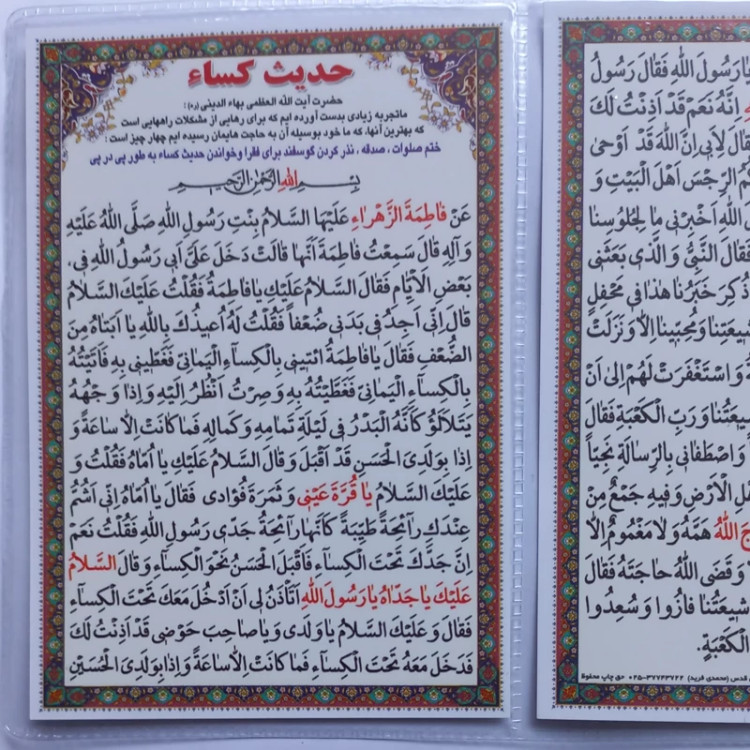 حدیث کساء
حضرت آیت الله العظمی بهاء الدینی (ره) :
ماتجربه زیادی بدست آورده ایم که برای رهایی از مشکلات راههایی است
که بهترین آنها، که ما خود بوسیله آن به حاجت هایمان رسیده ایم چهار چیز است :
ختم صلوات ، صدقه ، نذر کردن گوسفند برای فقرا وخواندن حدیث کساء به طور پی در پی
بِسْمِ اللهِ الرَّحْمنِ الرَّحیمِ
عَنْ فاطِمَةَ الزَّهْراءِ عَلَیْهَا السَّلامُ بِنْتِ رَسُولِ اللهِ صَلَّی اللهُ عَلَیْهِ
وَ آلِهِ قالَ سَمِعْتُ فاطِمَةَ اَنَّها قالَتْ دَخَلَ عَلَیَّ اَبی رَسُولُ اللهِ فی
بَعْضِ الْاَیّامِ فَقالَ السَّلامُ عَلَیْكِ یا فاطِمَةُ فَقُلْتُ عَلَیْكَ السَّلامُ
قالَ اِنّی اَجِدُ فی بَدَنی ضُعْفاً فَقُلْتُ لَهُ اُعیذُكَ بِاللهِ یا اَبَتاهُ مِنَ
الضُّعْفِ فَقالَ یا فاطِمَةُ ائْتینی بِالْکِساءِ الْیَمانی فَغَطّینی بِهِ فَاَتَیْتُهُ
بِالْکِساءِ الْیَمانی فَغَطَّیْتُهُ بِهِ وَ صِرْتُ اَنْظُرُ اِلَیْهِ وَ اِذا وَجْهُهُ
یَتَلَاْلَؤُ کَاَنَّهُ الْبَدْرُ فی لَیْلَةِ تَمامِهِ وَ کَمالِهِ فَما کانَتْ اِلّا ساعَةً وَ
اِذا بِوَلَدِیَ الْحَسَنِ قَدْ اَقْبَلَ وَ قالَ السَّلامُ عَلَیْكِ یا اُمّاهُ فَقُلْتُ وَ
عَلَیْكَ السَّلامُ یا قُرَّةَ عَیْنی وَ ثَمَرَةَ فُؤادی فَقالَ یا اُمّاهُ اِنّی اَشَمُّ
عِنْدَكِ رائِحَةً طَیِّبَةً کَاَنَّها رائِحَةُ جَدّی رَسُولِ اللهِ فَقُلْتُ نَعَمْ
اِنَّ جَدَّكَ تَحْتَ الْکِساءِ فَاَقْبَلَ الْحَسَنُ نَحْوَ الْکِساءِ وَ قالَ السَّلامُ
عَلَیْكَ یا جَدّاهُ یا رَسُولَ اللهِ اَتَاْذَنُ لی اَنْ اَدْخُلَ مَعَكَ تَحْتَ الْکِساءِ
فَقالَ وَ عَلَیْكَ السَّلامُ یا وَلَدی وَ یا صاحِبَ حَوْضی قَدْ اَذِنْتُ لَكَ
فَدَخَلَ مَعَهُ تَحْتَ الْکِساءِ فَما کانَتْ اِلّا ساعَةً وَ اِذا بِوَلَدِیَ الْحُسَیْنِ
یا رَسُولَ اللهِ فَقالَ رَسُولُ
اِنَّهُ نَعَمْ قَدْ اَذِنْتُ لَكَ
فَقالَ لِاَبی اِنَّ اللهَ قَدْ اَوْحی
الرِّجْسَ اَهْلَ الْبَیْتِ وَ
اللهِ اَخْبِرْنی ما لِجُلُوسِنا
فَقالَ النَّبِیُّ وَ الَّذی بَعَثَنی
ذُکِرَ خَبَرُنا هذا فی مَحْفِلٍ
شیعَتِنا وَ مُحِبّینا اِلّا وَ نَزَلَتْ
وَ اسْتَغْفَرَتْ لَهُمْ اِلی اَنْ
شیعَتُنا وَ رَبِّ الْکَعْبَةِ فَقالَ
وَ اصْطَفانی بِالرِّسالَةِ نَجِیّاً
الْاَرْضِ وَ فیهِ جَمْعٌ مِنْ
اللهُ هَمَّهُ وَ لا مَغْمُومٌ اِلّا
وَ قَضَی اللهُ حاجَتَهُ فَقالَ
شیعَتُنا فازُوا وَ سُعِدُوا
الْکَعْبَةِ.
قدس (محمدی فرید) ۳۷۷۴۳۷۲۲-۰۲۵ حق چاپ محفوظ